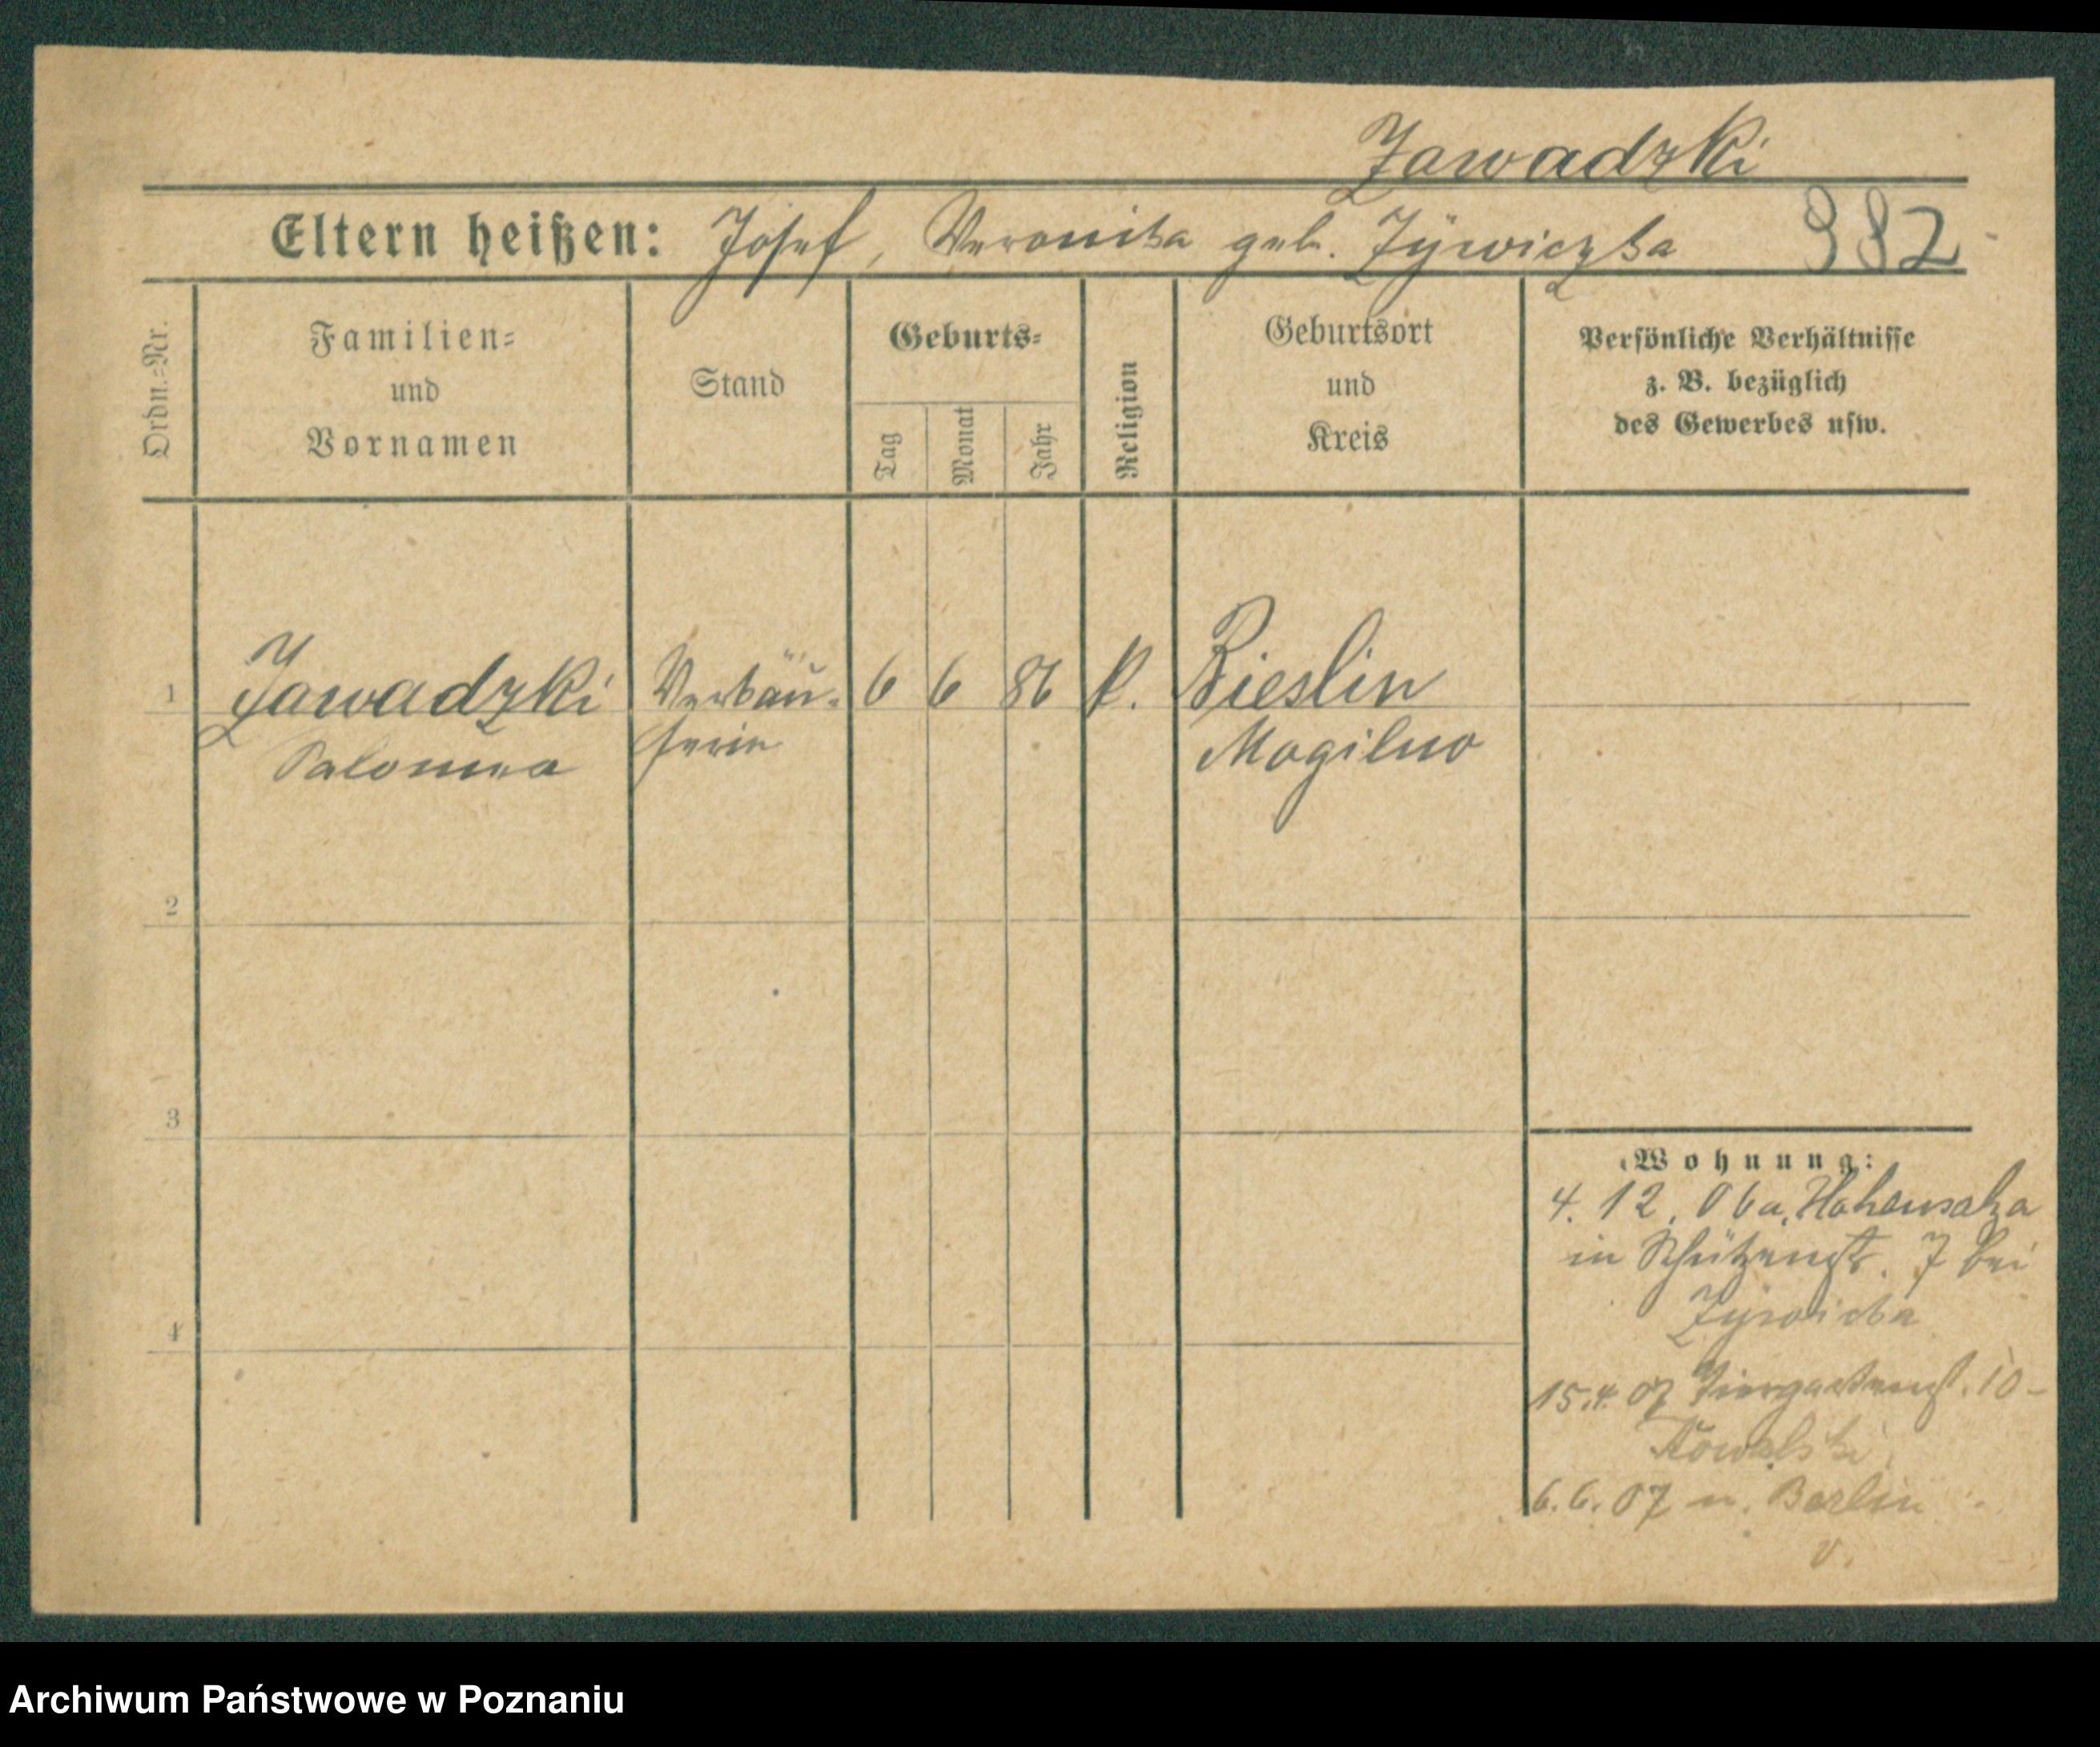 Zawadzki
Eltern heißen: Josef, Veronika geb. Zÿwiczka 982
Ordn.=Nr.
Familien=
und
Vornamen
Stand
Geburts=
Tag
Monat
Jahr
Religion
Geburtsort
und
Kreis
Persönliche Verhältnisse
z. B. bezüglich
des Gewerbes usw.
1 Zawadzki Verkäu- 6 6 86 k. Rieslin
Salomea ferin Mogilno
2
3
4
Wohnung:
4. 12. 06 a. Hohensalza
in Schützenstr. 7 bei
Zÿwicka
15.4.07 Tiergartenst. 10 -
Kowalski
6.6.07 n. Berlin
v.
Archiwum Państwowe w Poznaniu